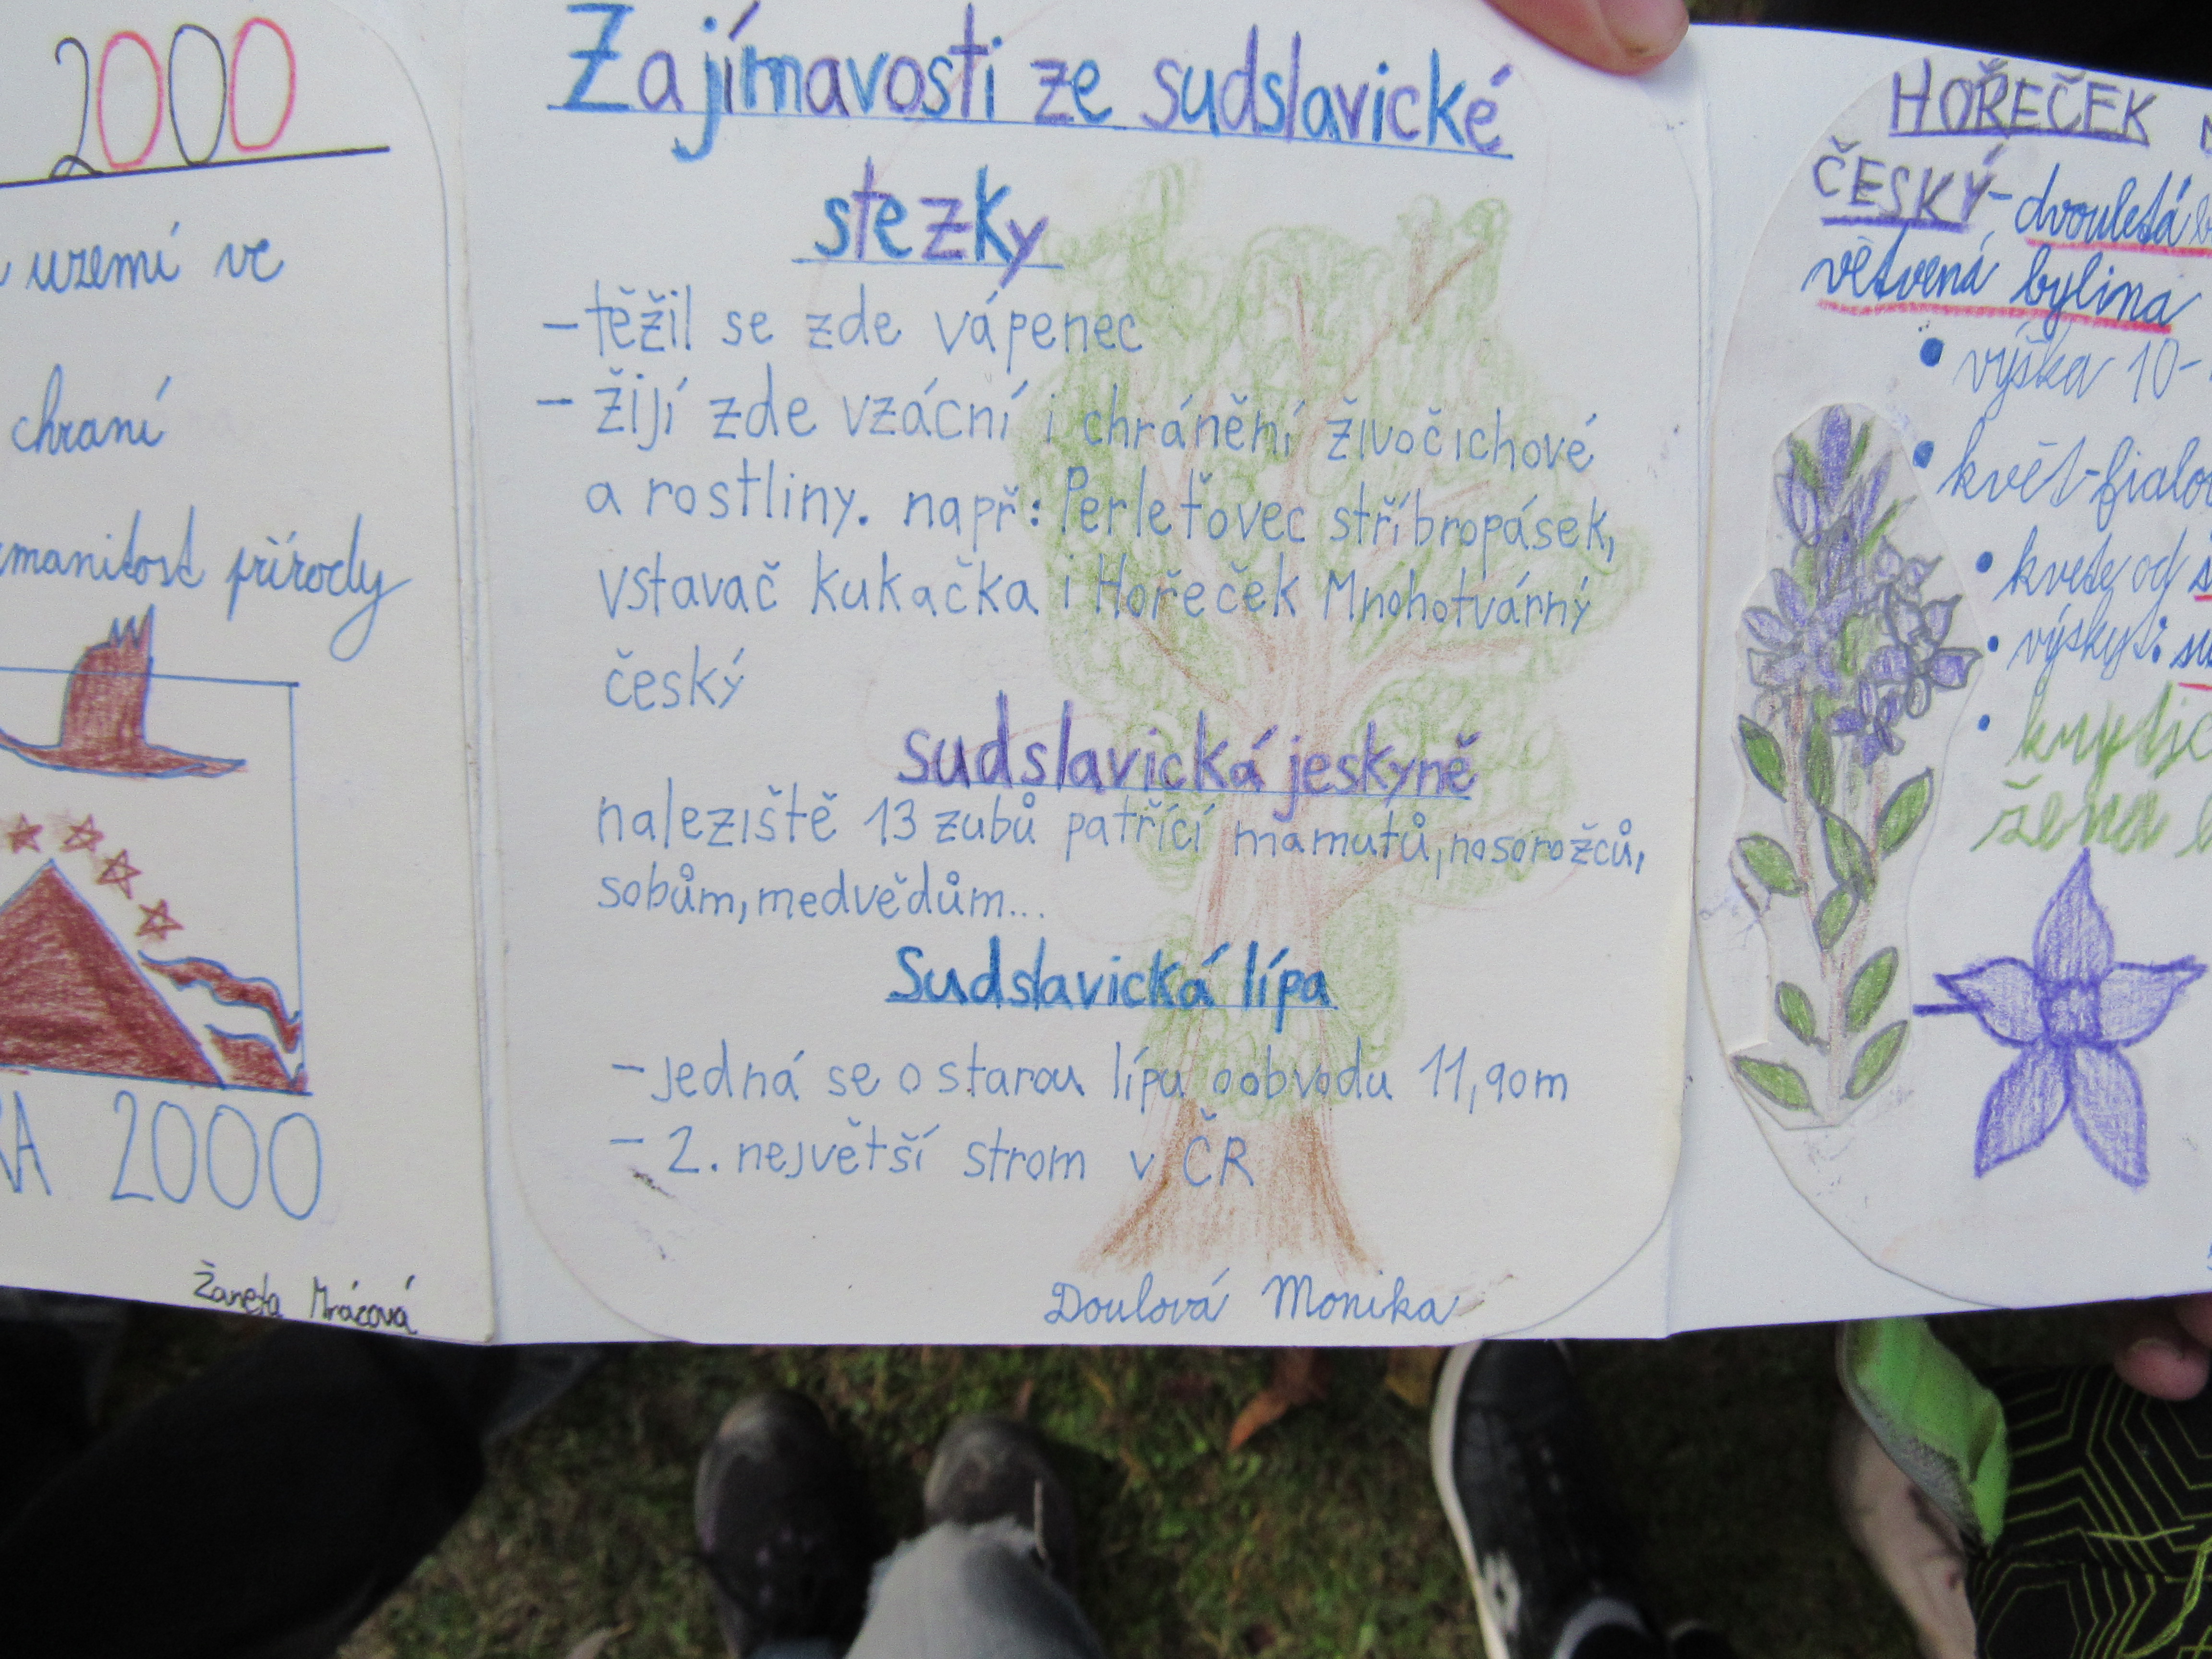 2000
uzemí ve
chraní
manitost přírody
2000
Žaneta Mrázová
Zajímavosti ze sudslavické
stezky
- těžil se zde vápenec
- žijí zde vzácní i chránění živočichové
a rostliny. např: Perleťovec stříbropásek,
vstavač kukačka i Hořeček Mnohotvárný
český
sudslavická jeskyně
naleziště 13 zubů patřící mamutů, nosorožců,
sobům, medvědům...
Sudslavická lípa
- jedná se o starou lípu o obvodu 11,90m
- 2. největší strom v ČR
Doulová Monika
HOŘEČEK
ČESKÝ - dvouletá
větvená bylina
• výška 10-
• květ - fialo
• kvete od
• výskyt:
• kritic
žena